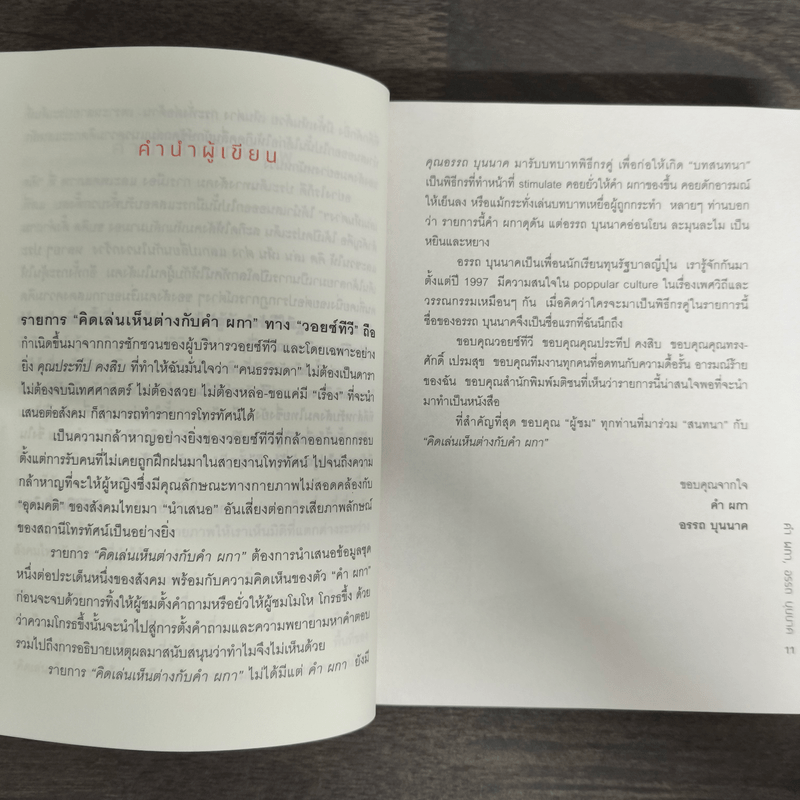 คำนำผู้เขียน
รายการ "คิดเล่นเห็นต่างกับคำ ผกา" ทาง "วอยซ์ทีวี" ถือ
กำเนิดขึ้นมาจากการชักชวนของผู้บริหารวอยซ์ทีวี และโดยเฉพาะอย่าง
ยิ่ง คุณประทีป คงสิบ ที่ทำให้ฉันมั่นใจว่า "คนธรรมดา" ไม่ต้องเป็นดารา
ไม่ต้องจบนิเทศศาสตร์ ไม่ต้องสวย ไม่ต้องหล่อ-ขอแค่มี "เรื่อง" ที่จะนำ
เสนอต่อสังคม ก็สามารถทำรายการโทรทัศน์ได้
เป็นความกล้าหาญอย่างยิ่งของวอยซ์ทีวีที่กล้าออกนอกกรอบ
ตั้งแต่การรับคนที่ไม่เคยถูกฝึกฝนมาในสายงานโทรทัศน์ ไปจนถึงความ
กล้าหาญที่จะให้ผู้หญิงซึ่งมีคุณลักษณะทางกายภาพไม่สอดคล้องกับ
"อุดมคติ" ของสังคมไทยมา "นำเสนอ" อันเสี่ยงต่อการเสียภาพลักษณ์
ของสถานีโทรทัศน์เป็นอย่างยิ่ง
รายการ "คิดเล่นเห็นต่างกับคำ ผกา" ต้องการนำเสนอข้อมูลชุด
หนึ่งต่อประเด็นหนึ่งของสังคม พร้อมกับความคิดเห็นของตัว "คำ ผกา"
ก่อนจะจบด้วยการทิ้งให้ผู้ชมตั้งคำถามหรือยั่วให้ผู้ชมโมโห โกรธขึ้ง ด้วย
ว่าความโกรธขึ้งนั้นจะนำไปสู่การตั้งคำถามและความพยายามหาคำตอบ
รวมไปถึงการอธิบายเหตุผลมาสนับสนุนว่าทำไมจึงไม่เห็นด้วย
รายการ "คิดเล่นเห็นต่างกับคำ ผกา" ไม่ได้มีแต่ คำ ผกา ยังมี
คุณอรรถ บุนนาค มารับบทบาทพิธีกรคู่ เพื่อก่อให้เกิด "บทสนทนา"
เป็นพิธีกรที่ทำหน้าที่ stimulate คอยยั่วให้คำ ผกาของขึ้น คอยดักอารมณ์
ให้เย็นลง หรือแม้กระทั่งเล่นบทบาทเหยื่อผู้ถูกกระทำ หลายๆ ท่านบอก
ว่า รายการนี้คำ ผกาดุดัน แต่อรรถ บุนนาคอ่อนโยน ละมุนละไม เป็น
หยินและหยาง
อรรถ บุนนาคเป็นเพื่อนนักเรียนทุนรัฐบาลญี่ปุ่น เรารู้จักกันมา
ตั้งแต่ปี 1997 มีความสนใจใน poppular culture ในเรื่องเพศวิถีและ
วรรณกรรมเหมือนๆ กัน เมื่อคิดว่าใครจะมาเป็นพิธีกรคู่ในรายการนี้
ชื่อของอรรถ บุนนาคจึงเป็นชื่อแรกที่ฉันนึกถึง
ขอบคุณวอยซ์ทีวี ขอบคุณคุณประทีป คงสิบ ขอบคุณคุณทรง-
ศักดิ์ เปรมสุข ขอบคุณทีมงานทุกคนที่อดทนกับความดื้อรั้น อารมณ์ร้าย
ของฉัน ขอบคุณสำนักพิมพ์มติชนที่เห็นว่ารายการนี้น่าสนใจพอที่จะนำ
มาทำเป็นหนังสือ
ที่สำคัญที่สุด ขอบคุณ "ผู้ชม" ทุกท่านที่มาร่วม "สนทนา" กับ
"คิดเล่นเห็นต่างกับคำ ผกา"
ขอบคุณจากใจ
คำ ผกา
อรรถ บุนนาค
คำ ผกา, อรรถ บุนนาค
11